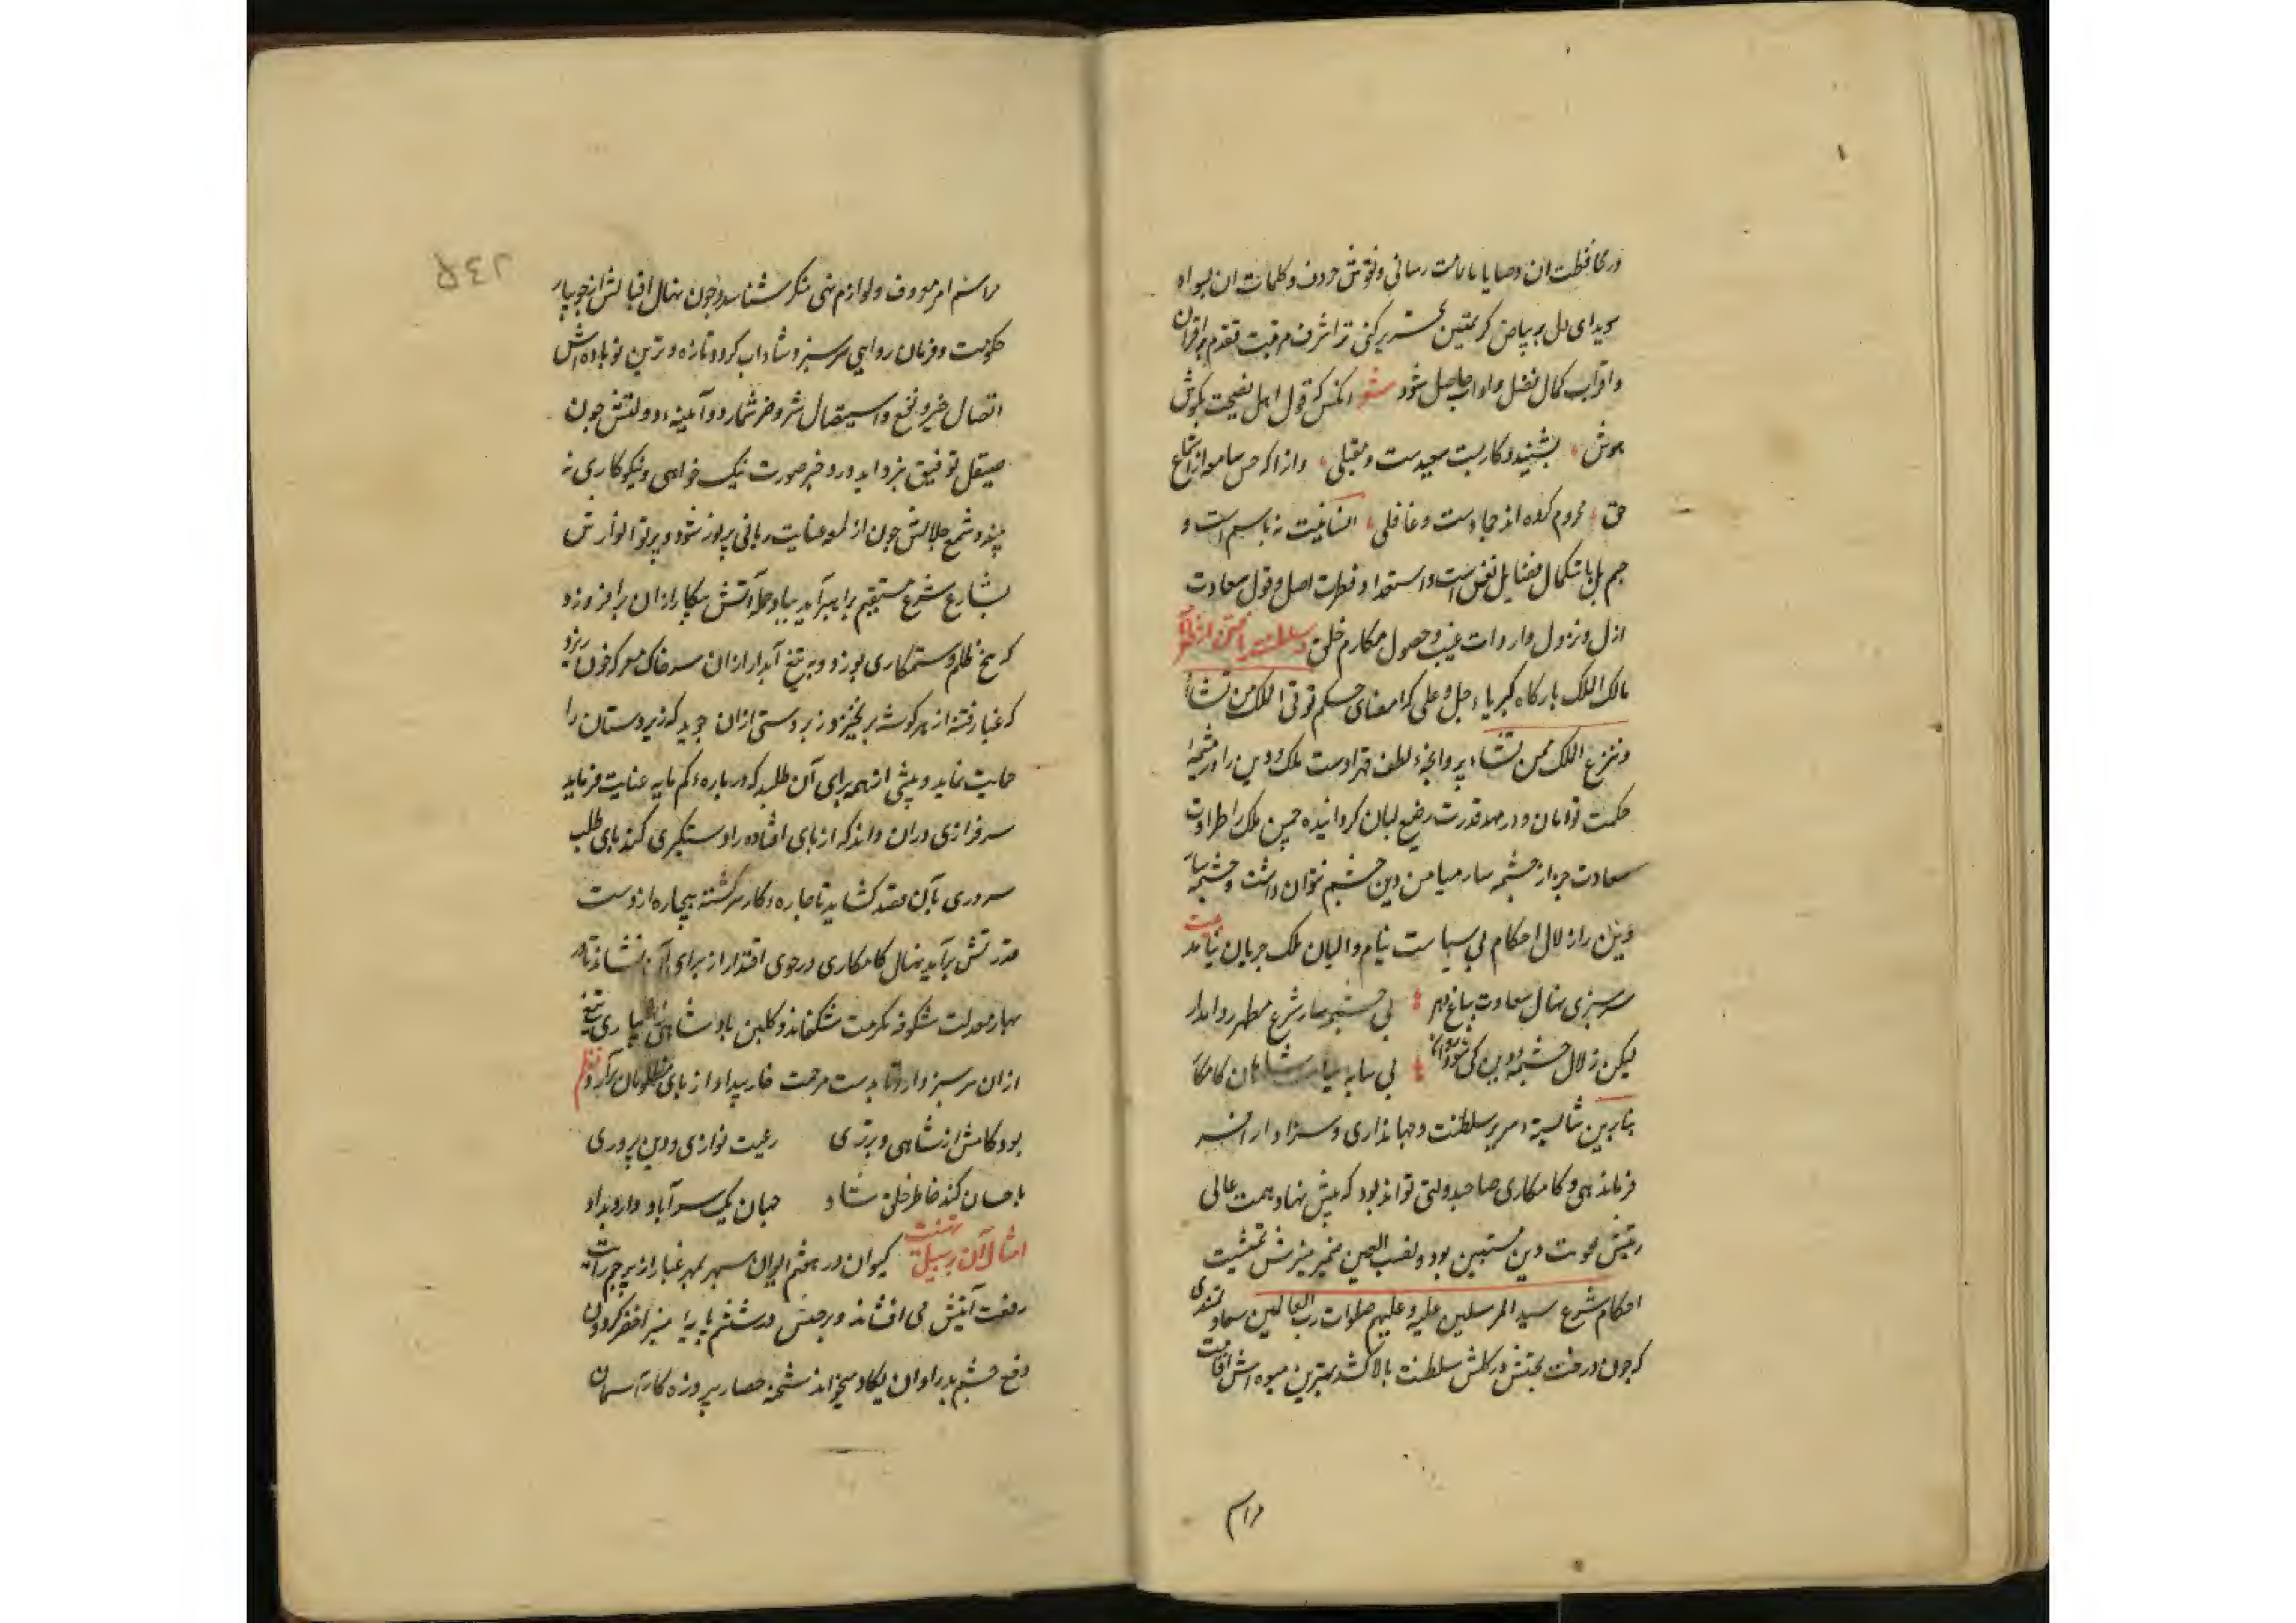 در محافظت ان وصایا بامانت رسانی و نقوش حروف و کلمات ان بسواد
سویدای دل بر بیاض کر یقین تحریر کنی ترا شرف مرتبت تقدم بر اقران
و اتراب کمال فضل و اداب حاصل شود شعر انکس که قول اهل نصیحت بکوش
هوش بشنید و کار بست سعیدست و مقبلی وانرا که حس سامعه از استماع
حق محروم کرده اند جمادست و غافلی انسانیت نه باسم است و
جسم بل باستکمال فضایل نفس است و استعداد فطرت اصل و قبول سعادت
ازل و نزول واردات غیب و حصول مکارم خلق
مالک الملک بارکاه کبریاء جل و علی که امضای حکم توتی الملک من تشاء
و تنزع الملک ممن تشاء پروانجهٔ لطف و قهر اوست ملک و دین را در مشیمهٔ
حکمت توامان و در مهد قدرت رضیع لبان کردانیده چمن ملک را طراوت
سعادت جز از چشمه سار میامن دین چشم نتوان داشت و چشمه سار
دین را زلال احکام بی سیاست نیام والیان ملک جریان نیابد
سرسبزی نهال سعادت بباغ دهر بی چشمه سار شرع مطهر روا مدار
لیکن زلال چشمهٔ دین کی شود روان بی سایه سیاست شاهان کامکار
بنابرین شایستهٔ سریر سلطنت و جهانداری و سزاوار افسر
فرماندهی و کامکاری صاحبدولتی تواند بود که پیش نهاد همت عالی
رتبتش تقویت دین مستبین بود و نصب العین ضمیر منیرش تمشیت
احکام شرع سید المرسلین علیه و علیهم صلوات رب العالمین سعادتمندی
که چون درخت بختش در کلشن سلطنت بالا کشد بهترین میوه اش اقامت
مراسم
مراسم امر معروف و لوازم نهی منکر شناسد و چون نهال اقبالش از جویبار
حکومت و فرمان روایی سرسبز و شاداب کردد تازه و ترین نوباوه اش
اتصال خیر و نفع و استیصال شر و ضر شمارد و آیینهٔ دولتش چون
صیقل توفیق بزداید در و جز صورت نیک خواهی و نیکو کاری نه
بیند و شمع جلالش چون از لمعه عنایت ربانی پر نور شود و پرتو انوارش
بشارع شرع مستقیم راهبر آید بباد حمله آتش پیکار ازان برافروزد
که بیخ ظلم و ستمکاری بسوزد و به تیغ آبدار ازان سر خاک معرکه خون ریزد
که غبار فتنه از هر کوشه بر نخیزد زبردستی ازان جوید که زیردستان را
حمایت نماید و بیشی از همه برای آن طلبد که درباره کم مایه عنایت فرماید
سرفرازی دران داند که از پای افتاده را دستگیری کند پای طلب
سروری بآن قصد کشاید تا چاره کار سرکشته بیچاره از دست
قدرتش برآید نهال کامکاری در جوی اقتدار از برای آن نشاند تا در
بهار معدلت شکوفه مکرمت شکفاند و کلبن پادشاهی بابیاری تیغ
ازان سرسبز دارد تا بدست مرحمت خار بیداد از پای مظلومان برآرد نظم
بود کامش از شاهی و برتری رعیت نوازی و دین پروری
باحسان کند خاطر خلق شاد جهان یک سر آباد دارد بداد
امثال آن بر سبیل تهنیت کیوان در هفتم ایوان سپهر بمهر غبار از پرچم رایت
رفعت آیتش می افشاند و برجیس در ششم پایهٔ منبر اخضر کردون
دفع چشم بد را و ان یکاد میخواند شحنهٔ حصار پیروزه کار آسمان